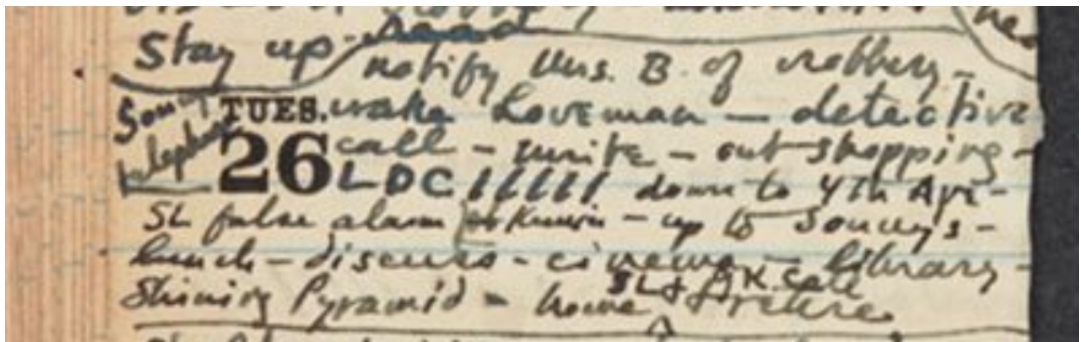 Stay up - read
notify Mrs. B. of robbery -
Sonny TUES. wake Loveman — detective
telephone 26 call - write - out shopping -
LDC ////// down to 4th Ave -
SL false alarm Kirwin - up to Sonny's -
lunch - discuss - cinema - library -
SL + AK
Shining Pyramid - home retire